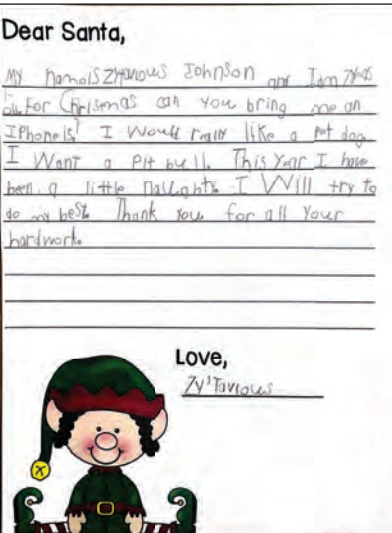 Dear Santa,
My namais Zytavious Johnson and I am 7 years
old. For Chrismas can you bring me an
IPhone15? I Would really like a pet dog.
I Want a Pit bull. This Year I have
been a little naughty. I Will try to
do my best. Thank you for all Your
hardwork.
Love,
Zy'Tavious